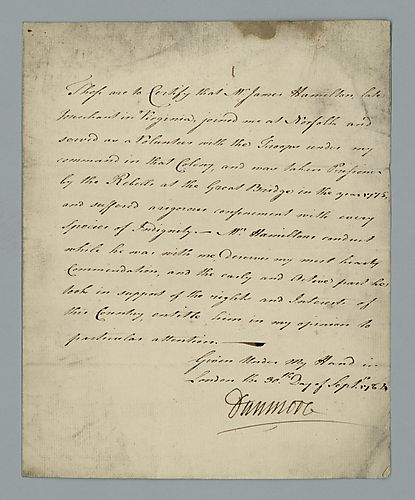 These are to Certify that Mr. James Hamilton, late
Merchant in Virginia, joined me at Norfolk and
served as a Volunteer with the Troops under my
command in that Colony and was taken Prisoner
by the Rebells at the Great Bridge in the year 1775,
and suffered a rigorous confinement with every
Species of Indignity — Mr. Hamiltons conduct
while he was with me deserves my most hearty
Commendation, and the early and Active part he
took in support of the rights and Interests of
this Country, entitle him in my opinion to
particular attention. —
Given Under My Hand in
London the 30th Day of Septr.
Dunmore